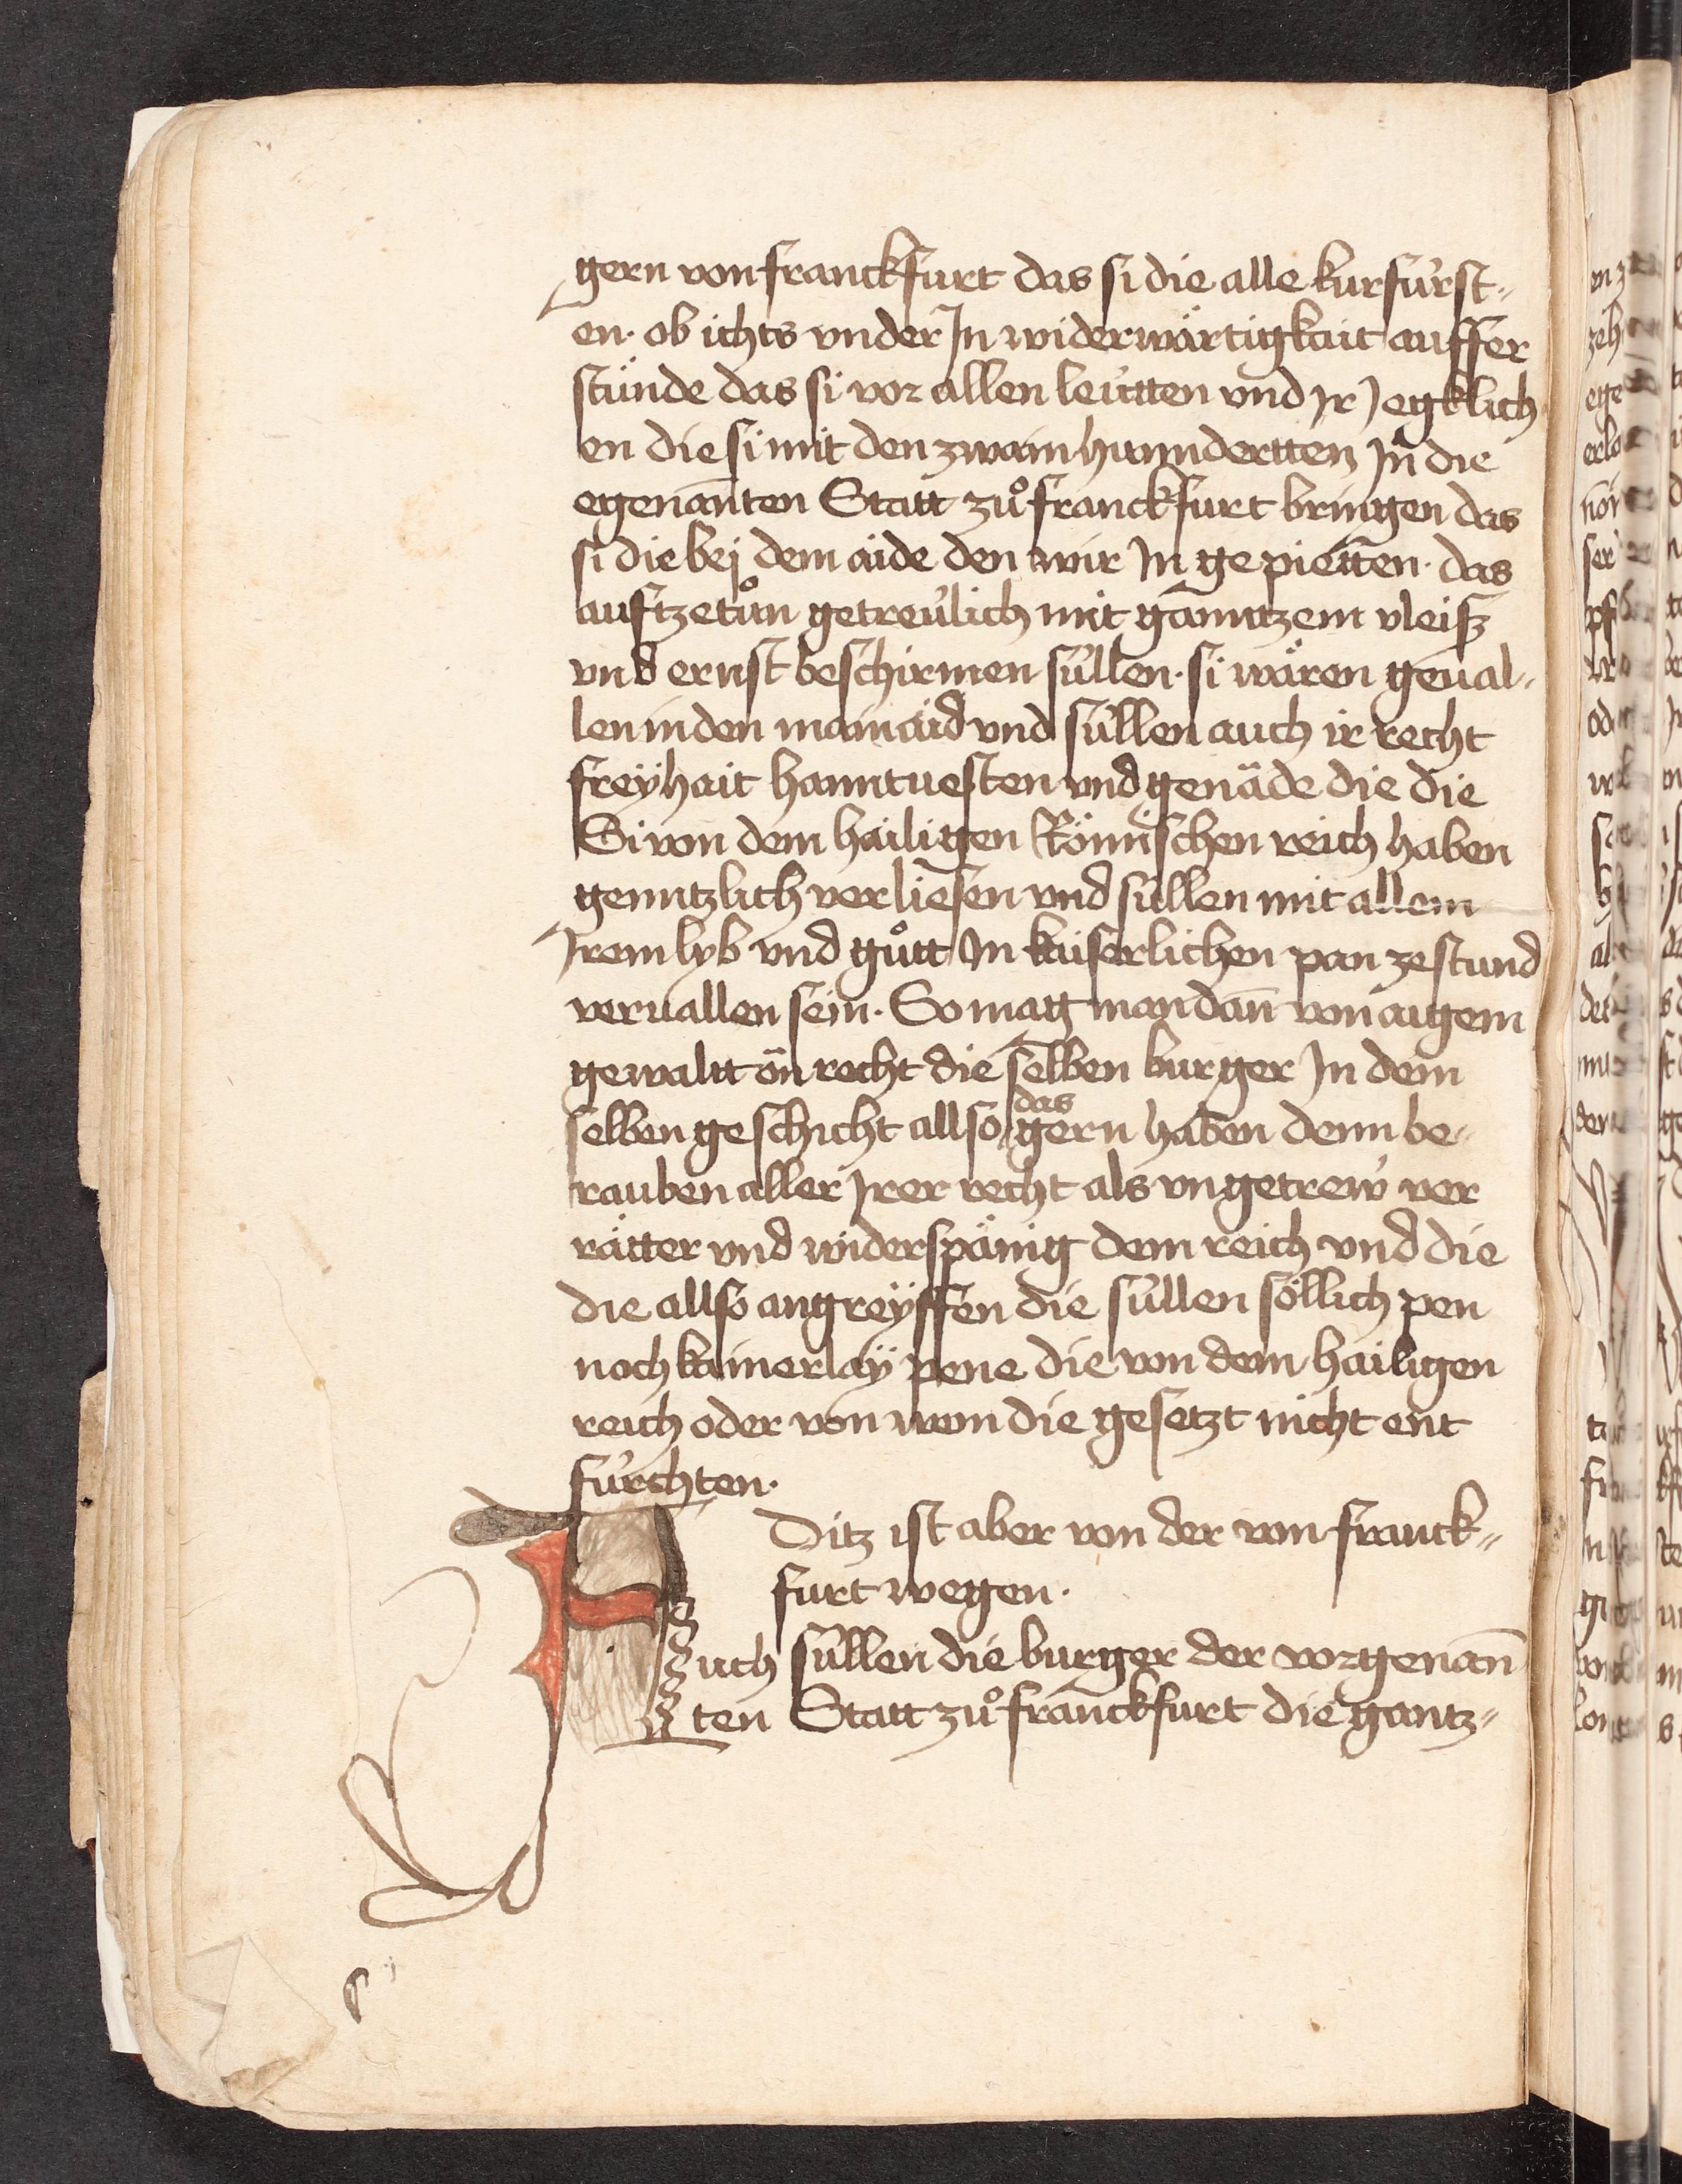 gern von franckfurt das si die alle kurfürst-
en· ob ichts vnder In widerwärtigkait auffer
stünde das si vor allen leütten vnd Ir Jegklich
en die si mit den zwain hunndertten In die
egenanten Statt zů franckfurt bringen das
si die bej dem aide den wir In gepietten· das
auftzetůn getreülich mit gänntzem vleiß
vnd ernst beschirmen süllen· si wären geual-
len in den mainaid vnd süllen auch ir recht
freÿhait hanntuesten vnd genäde die die
Si von dem hailigen Römischen reich haben
genntzlich verliesen vnd süllen mit allem
Irem lyb vnd gůtt In kaiserlichen pan zestund
veruallen sein· So mag man dan̄ von aigem
gewalt ön recht die selben burger In dem
selben geschicht allso das gern haben denn be-
rauben aller Irer recht als vngetrew ver
rätter vnd widerspänig dem reich vnd die
die allso angreÿffen die süllen söllich pen
noch kainerlaÿ pene die von dem hailigen
reich oder von wem die gesetzt nicht ent
fürchten·
Ditz ist aber von der von franck-
furt wegen·
Auch süllen die burger der vorgenan̄
ten Statt zů franckfurt die gantz-